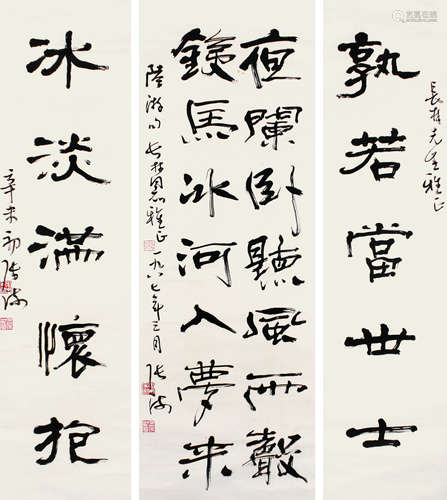 先生雅正
孰若當世士
夜闌卧聽風雨聲
銕馬冰河入夢来
陸游句 雅正 一九八七年三月 張海
冰淡滿懷抱
辛未初 張海